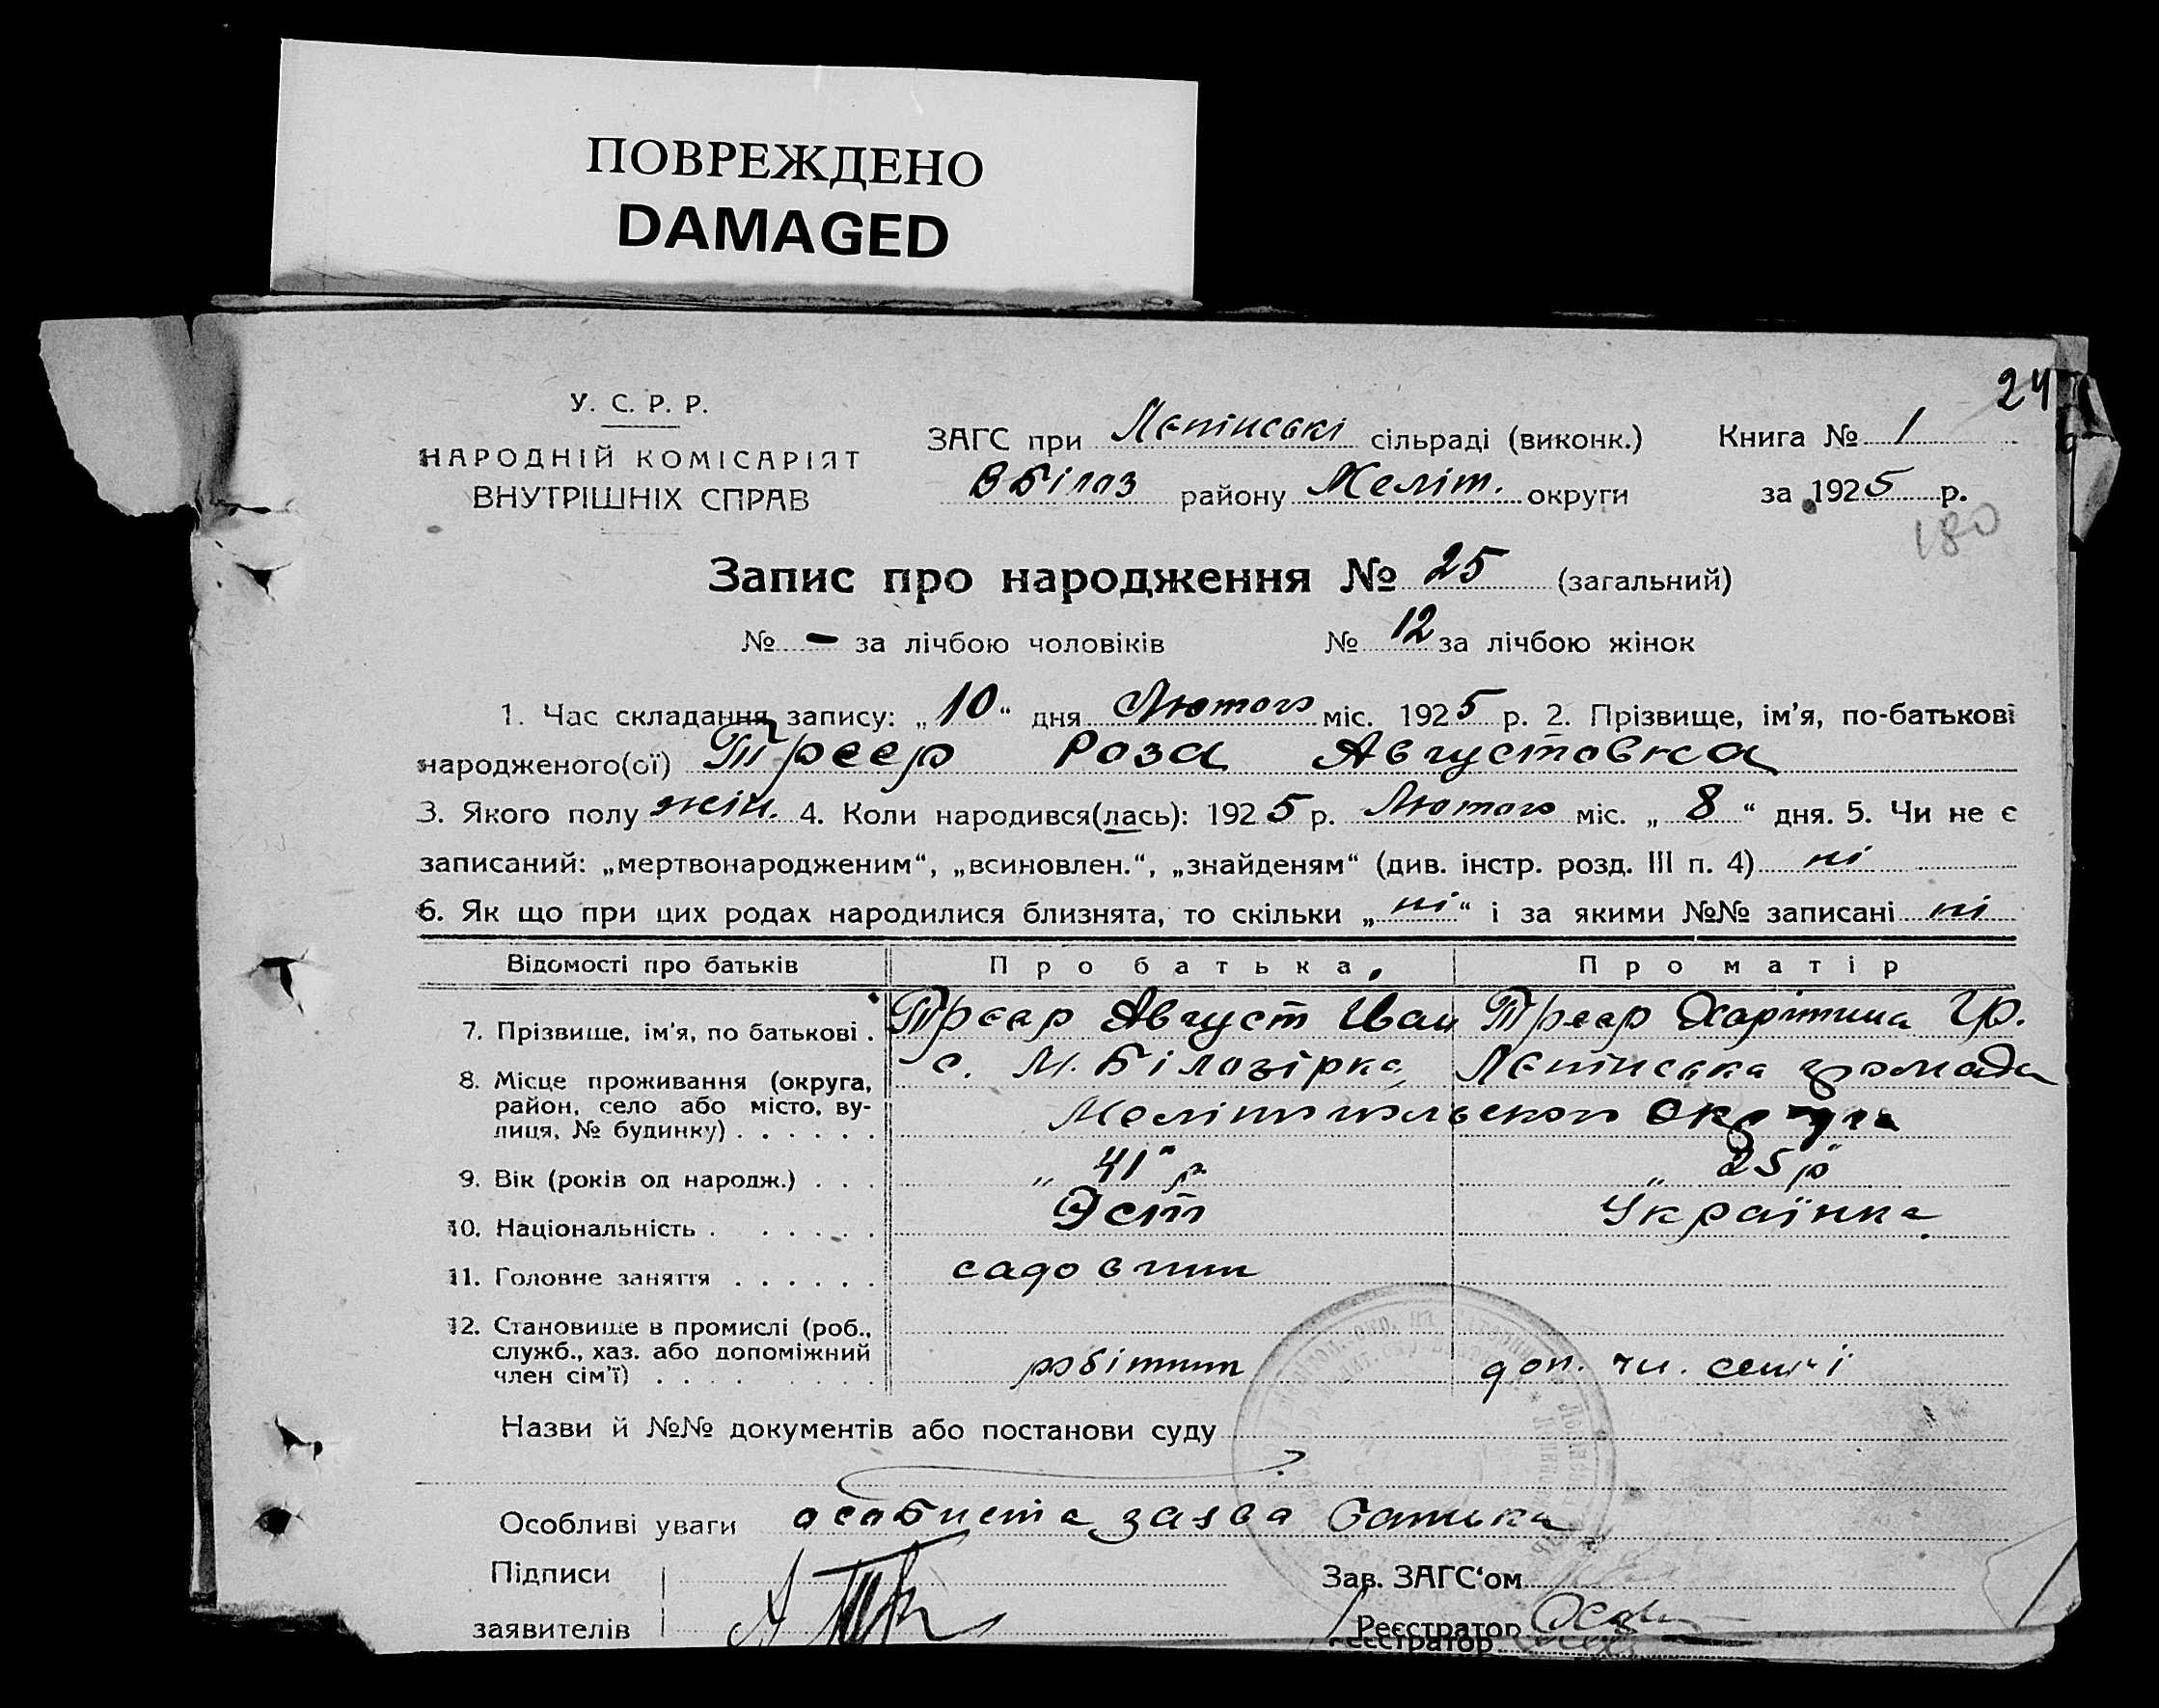 ПОВРЕЖДЕНО
DAMAGED
24
У. С. Р. Р.
НАРОДНІЙ КОМІСАРІЯТ
ВНУТРІШНІХ СПРАВ
ЗАГС при Лепінські сільраді (виконк.) Книга № 1
ВБілоз району Меліт. округи за 1925 р.
180
Запис про народження № 25 (загальний)
№ - за лічбою чоловіків № 12 за лічбою жінок
1. Час складання запису: „10“ дня Лютого міс. 1925 р. 2. Прізвище, ім'я, по-батькові
народженого(ої) Треер Роза Августовка
3. Якого полу жін. 4. Коли народився(лась): 1925 р. Лютого міс. „8“ дня. 5. Чи не є
записаний: „мертвонародженим“, „всиновлен.“, „знайденям“ (див. інстр. розд. III п. 4) ні
6. Як що при цих родах народилися близнята, то скільки „ні“ і за якими №№ записані ні
Відомості про батьків Про батька Про матір
7. Прізвище, ім'я, по батькові . Треєр Август Иван Треєр Харітина Гр.
8. Місце проживання (округа, с. М. Білозірка, Лепінська громада
район, село або місто, ву-
лиця, № будинку) . . . . . . Мелітопольскоп Округа
9. Вік (років од народж.) . . . „41“ р „25 р“
10. Національність . . . . . . Эст Українка
11. Головне заняття . . . . . . садовник
12. Становище в промислі (роб.,
служб., хаз. або допоміжний робітник доп. чл. семї
член сім'ї) . . . . . . . .
Назви й №№ документів або постанови суду
Особливі уваги особиста заява батька
Підписи Зав. ЗАГС'ом
заявителів Реєстратор
Реєстратор